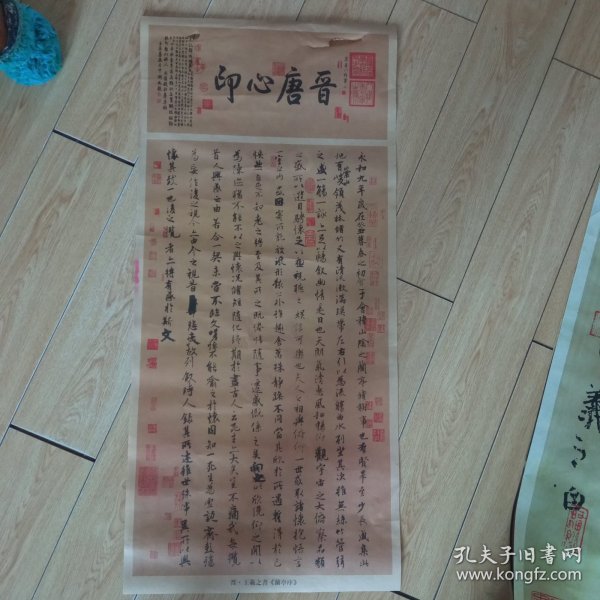 晉唐心印
永和九年歲在癸丑暮春之初會于會稽山陰之蘭亭脩稧事也羣賢畢至少長咸集此
地有崇山峻領茂林脩竹又有清流激湍暎帶左右引以為流觴曲水列坐其次雖無絲竹管弦
之盛一觴一詠亦足以暢叙幽情是日也天朗氣清惠風和暢仰觀宇宙之大俯察品類
之盛所以遊目騁懷足以極視聽之娛信可樂也夫人之相與俯仰一世或取諸懷抱悟言
一室之內或因寄所託放浪形骸之外雖趣舍萬殊靜躁不同當其欣於所遇蹔得於己
怏然自足不知老之將至及其所之既惓情隨事遷感慨係之矣向之所欣俛仰之閒以
為陳迹猶不能不以之興懷況脩短隨化終期於盡古人云死生亦大矣豈不痛哉每攬
昔人興感之由若合一契未嘗不臨文嗟悼不能喻之於懷固知一死生為虛誕齊彭殤
為妄作後之視今亦由今之視昔悲夫故列叙時人錄其所述雖世殊事異所以興
懷其致一也後之攬者亦將有感於斯文
晉·王羲之書《蘭亭序》
孔夫子旧书网
www.kongfz.com